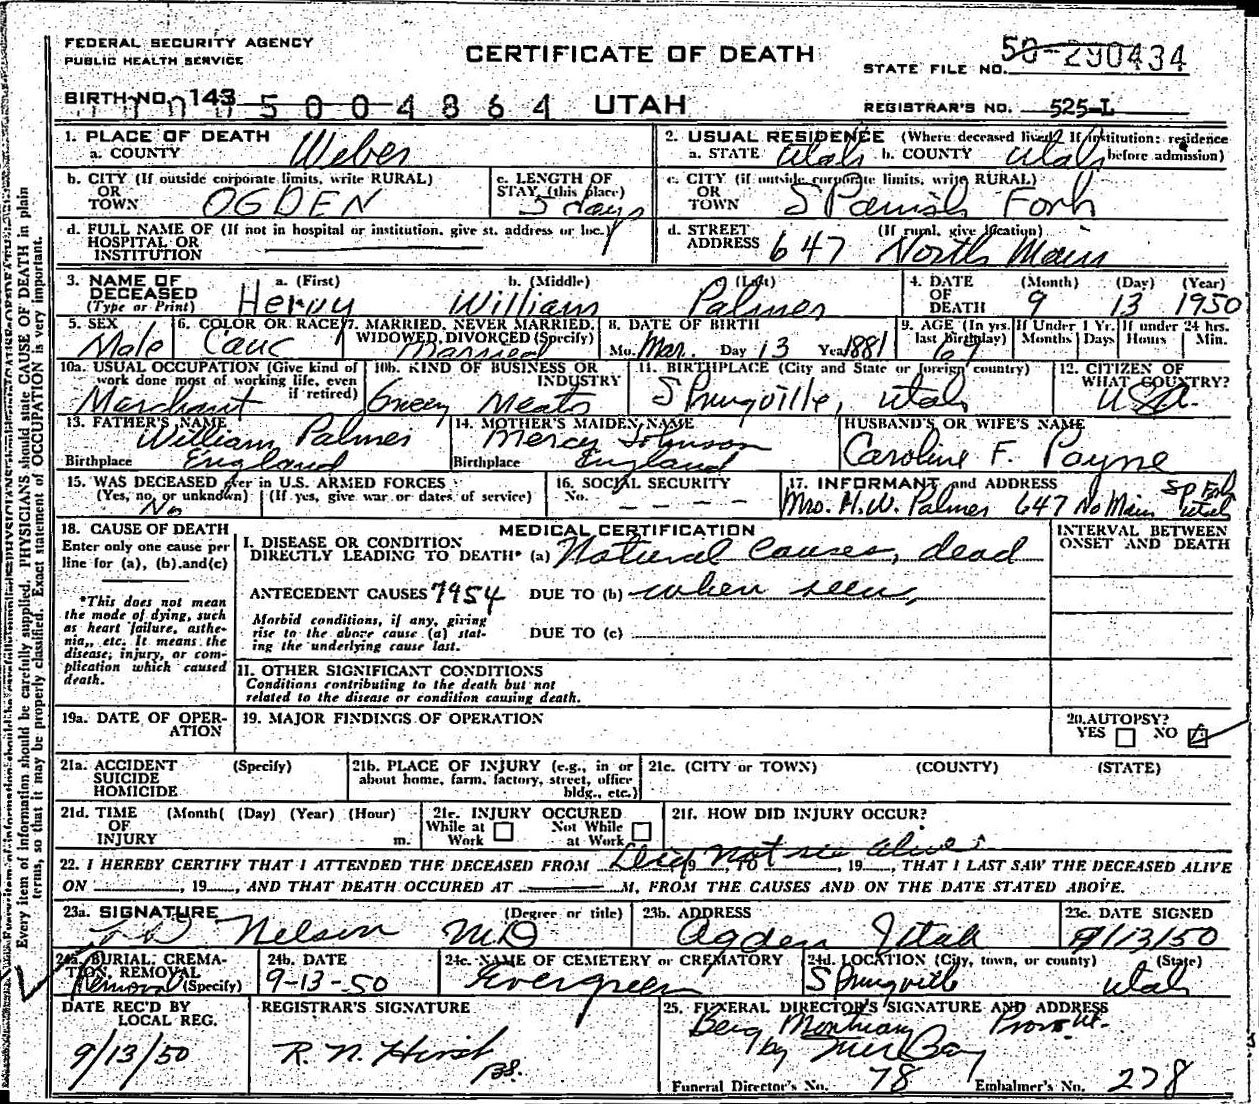 FEDERAL SECURITY AGENCY
PUBLIC HEALTH SERVICE
CERTIFICATE OF DEATH
STATE FILE NO. 50-290434
BIRTH NO. 143
5004864 UTAH
REGISTRAR'S NO. 525-L
1. PLACE OF DEATH
a. COUNTY Weber
2. USUAL RESIDENCE (Where deceased lived? If institution: residence before admission)
a. STATE Utah b. COUNTY Utah
b. CITY (If outside corporate limits, write RURAL)
OR
TOWN OGDEN
c. LENGTH OF
STAY (this place)
5 days
c. CITY (if outside corporate limits, write RURAL)
OR
TOWN Spanish Fork
d. FULL NAME OF (If not in hospital or institution, give st. address or loc.)
HOSPITAL OR
INSTITUTION
d. STREET (If rural, give location)
ADDRESS 647 North Main
3. NAME OF DECEASED
(Type or Print)
a. (First) b. (Middle) (Last)
William Palmer
4. DATE OF DEATH
(Month) (Day) (Year)
9 13 1950
5. SEX
Male
6. COLOR OR RACE
Cauc
7. MARRIED, NEVER MARRIED,
WIDOWED, DIVORCED (Specify)
Married
8. DATE OF BIRTH
Mo. Mar. Day 13 Year 1881
9. AGE (In yrs. last birthday)
If Under 1 Yr. Months Days
If under 24 hrs. Hours Min.
10a. USUAL OCCUPATION (Give kind of work done most of working life, even if retired)
Merchant
10b. KIND OF BUSINESS OR INDUSTRY
Meats
11. BIRTHPLACE (City and State or foreign country)
Springville, Utah
12. CITIZEN OF WHAT COUNTRY?
USA.
13. FATHER'S NAME
William Palmer
Birthplace England
14. MOTHER'S MAIDEN NAME
Mercy Johnson
Birthplace England
HUSBAND'S OR WIFE'S NAME
Caroline F. Payne
15. WAS DECEASED ever in U.S. ARMED FORCES
(Yes, no, or unknown) (If yes, give war or dates of service)
No
16. SOCIAL SECURITY
No. - - -
17. INFORMANT and ADDRESS
Mrs. H.W. Palmer 647 No Main Sp Fork Utah
18. CAUSE OF DEATH
Enter only one cause per
line for (a), (b), and (c)
*This does not mean
the mode of dying, such
as heart failure, asthe-
nia, etc. It means the
disease, injury, or com-
plication which caused
death.
MEDICAL CERTIFICATION
I. DISEASE OR CONDITION
DIRECTLY LEADING TO DEATH* (a) Natural Causes, dead
ANTECEDENT CAUSES 7954 DUE TO (b) when seen,
Morbid conditions, if any, giving
rise to the above cause (a) stat-
ing the underlying cause last.
DUE TO (c)
II. OTHER SIGNIFICANT CONDITIONS
Conditions contributing to the death but not
related to the disease or condition causing death.
INTERVAL BETWEEN
ONSET AND DEATH
19a. DATE OF OPER-
ATION
19. MAJOR FINDINGS OF OPERATION
20. AUTOPSY?
YES NO
21a. ACCIDENT (Specify)
SUICIDE
HOMICIDE
21b. PLACE OF INJURY (e.g., in or
about home, farm, factory, street, office
bldg., etc.)
21c. (CITY or TOWN) (COUNTY) (STATE)
21d. TIME (Month( (Day) (Year) (Hour)
OF
INJURY m.
21e. INJURY OCCURED
While at Work Not While at Work
21f. HOW DID INJURY OCCUR?
not see alive
22. I HEREBY CERTIFY THAT I ATTENDED THE DECEASED FROM 19, TO , 19, THAT I LAST SAW THE DECEASED ALIVE
ON , 19, AND THAT DEATH OCCURED AT M, FROM THE CAUSES AND ON THE DATE STATED ABOVE.
23a. SIGNATURE (Degree or title)
Nelson MD
23b. ADDRESS
Ogden Utah
23c. DATE SIGNED
9/13/50
24a. BURIAL, CREMA-
TION, REMOVAL
Removal (Specify)
24b. DATE
9-13-50
24c. NAME OF CEMETERY or CREMATORY
Evergreen
24d. LOCATION (City, town, or county) (State)
Springville Utah
DATE REC'D BY
LOCAL REG.
9/13/50
REGISTRAR'S SIGNATURE
R. N. Hirst
25. FUNERAL DIRECTOR'S SIGNATURE AND ADDRESS
Berg Mortuary Provo Ut.
by
Funeral Director's No. 78 Embalmer's No. 278
Every item of information should be carefully supplied. PHYSICIANS should state CAUSE OF DEATH in plain
terms, so that it may be properly classified. Exact statement of OCCUPATION is very important.